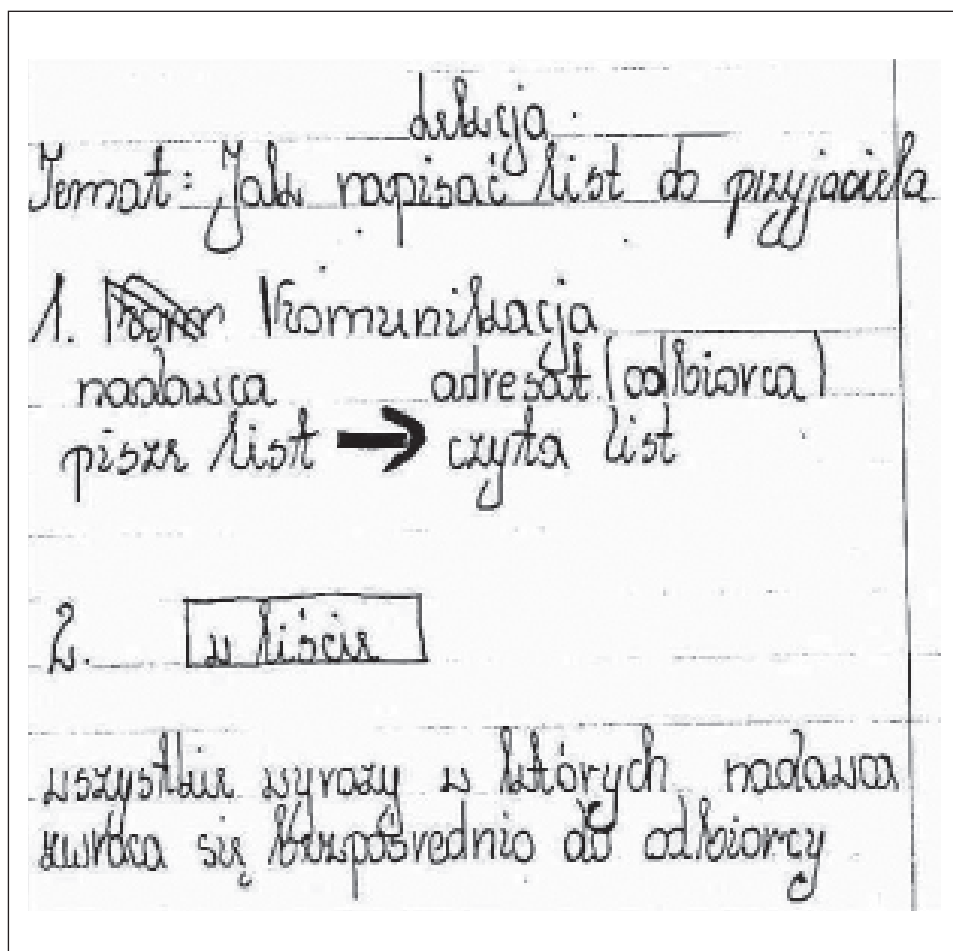 Lekcja.
Temat: Jak napisać list do przyjaciela
1. Komunikacja
nadawca adresat (odbiorca)
pisze list → czyta list
2. w liście
wszystkie wyrazy w których nadawca
zwraca się bezpośrednio do odbiorcy